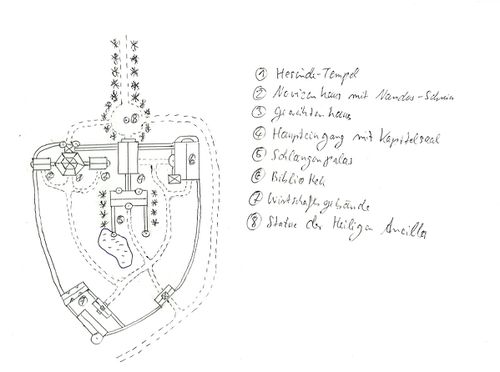 ① Hesinde-Tempel
② Novizenhaus mit Nandus-Schrein
③ Geweihtenhaus
④ Haupteingang mit Kapitelsaal
⑤ Schlangenpalas
⑥ Bibliothek
⑦ Wirtschaftsgebäude
⑧ Statue der Heiligen Ancilla